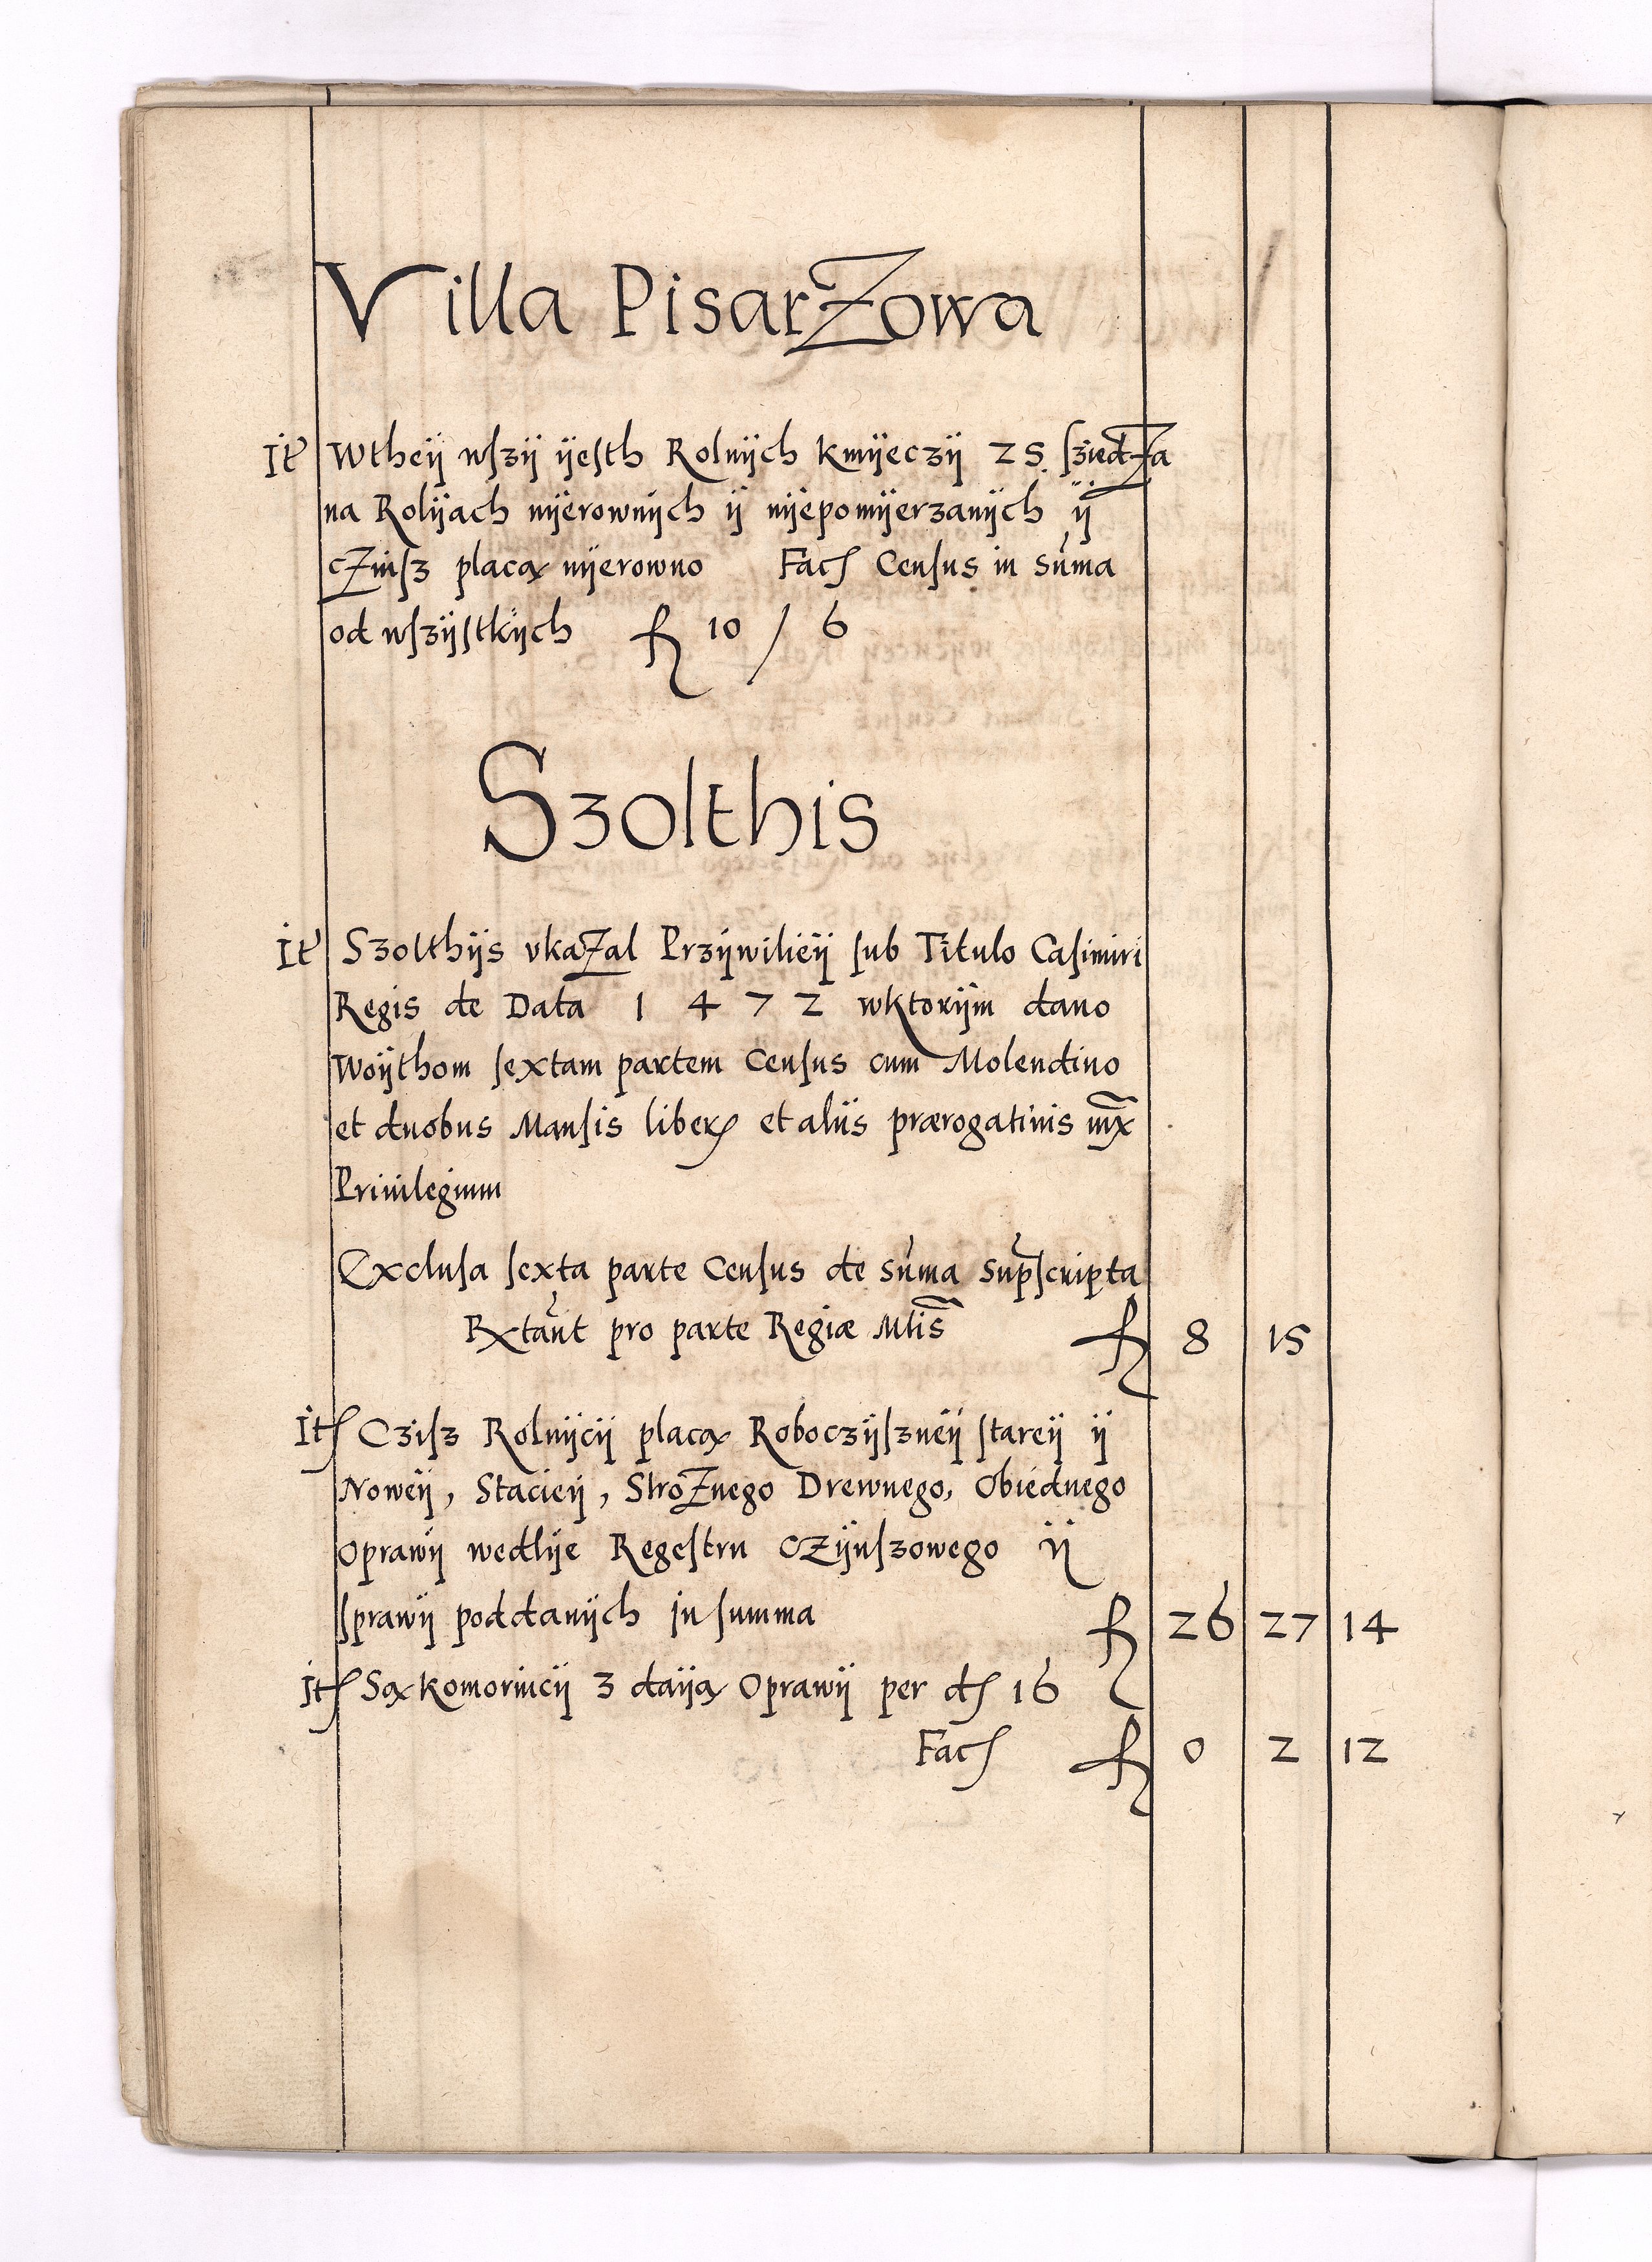 Villa PisarZowa
It Wtheÿ wszÿ ÿesth Rolnÿch kmÿeczÿ 25. sziedZa
na Rolÿach nÿerownÿch ÿ nÿepomÿerzanÿch ÿ
cZinsz placą nÿerowno Fac Census in suma
od wszÿstkÿch fl 10 / 6
Szolthis
It Szolthÿs vkaZal Przÿwilieÿ sub Titulo Casimiri
Regis de Data 1472 wktorÿm dano
Woÿthom sextam partem Census cum Molendino
et duobus Mansis liber et aliis prærogatiuis iux
Priuilegium
Exclusa sexta parte Census de suma supscripta
Extant pro parte Regiæ Mtis fl 8 15
It Czisz Rolnÿcÿ placą Roboczÿszneÿ stareÿ ÿ
Noweÿ, Stacieÿ, StroZnego Drewnego, Obiednego
Oprawÿ wedlÿe Regestru cZÿnszowego ÿ
sprawÿ poddanÿch in summa fl 26 27 14
It Są komornicÿ 3 daÿą Oprawÿ per d 16
Fac fl 0 2 12